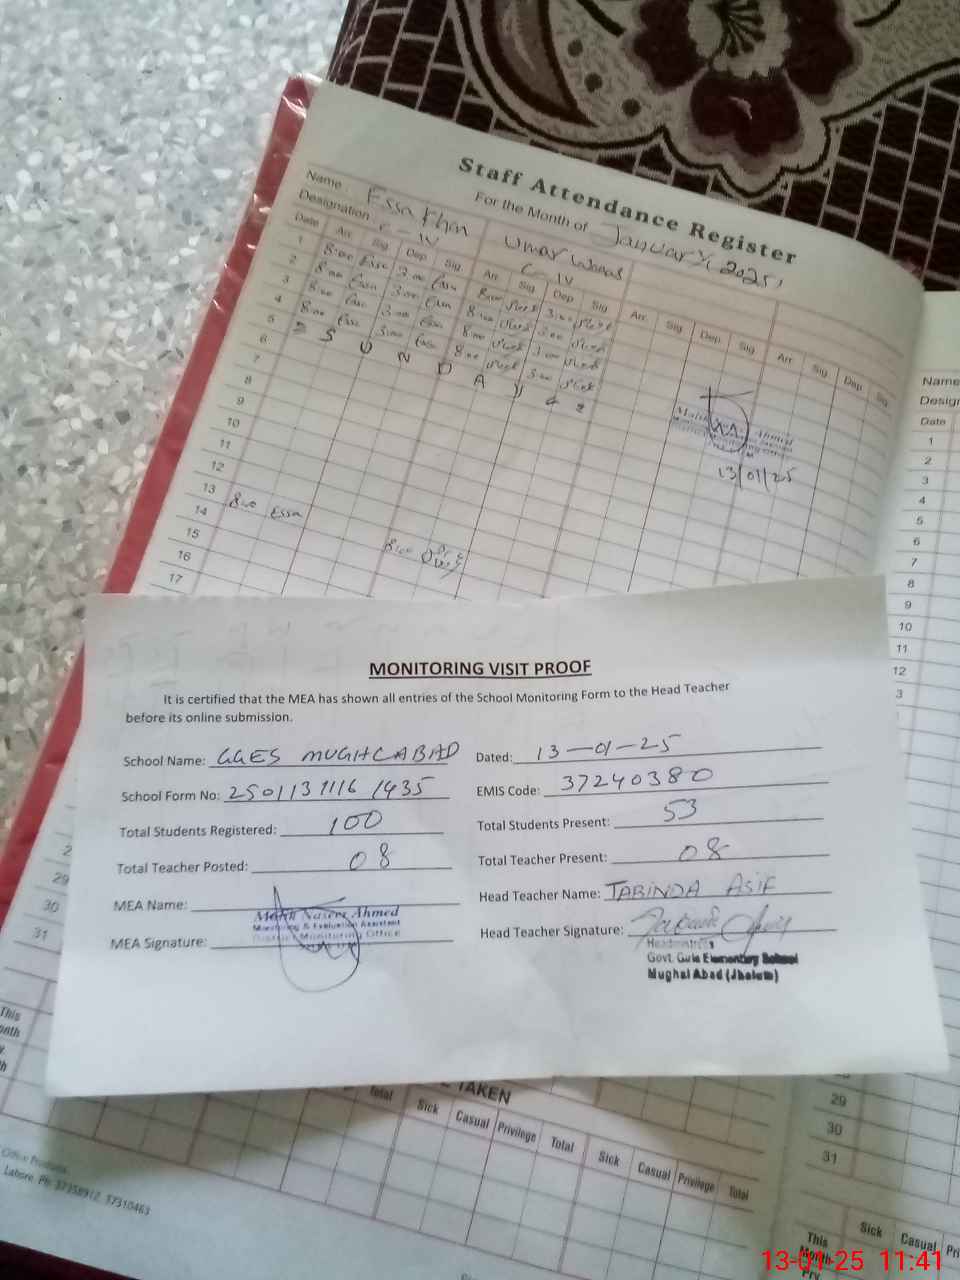 Staff Attendance Register
For the Month of January, 2025,
Name : Essa Khan Umar
Designation : C-IV C-IV
Date Arr. Sig Dep Sig Arr Sig Dep Sig Arr. Sig Dep Sig Arr Sig Dep Sig
1 8:00 Essa 3:00 Essa 8:00 3:00
2 8:00 Essa 3:00 Essa 8:00 3:00
3 8:00 Essa 3:00 Essa 8:00 3:00
4 8:00 Essa 3:00 Essa 8:00 3:00
5 S U N D A Y
6
7
8
9
10
11
12
13 8:00 Essa 8:00
14
15
16
17
Ahmed
Monitoring Office
13/01/25
Name
Date
1
2
3
4
5
6
7
8
9
10
11
12
3
MONITORING VISIT PROOF
It is certified that the MEA has shown all entries of the School Monitoring Form to the Head Teacher
before its online submission.
School Name: GGES MUGHLABAD Dated: 13-01-25
School Form No: 2501131116 1435 EMIS Code: 37240380
Total Students Registered: 100 Total Students Present: 53
Total Teacher Posted: 08 Total Teacher Present: 08
MEA Name: Head Teacher Name: TABINDA ASIF
MEA Signature: Head Teacher Signature:
Malik Naseer Ahmed
Monitoring & Evaluation Assistant
District Monitoring Office
Headmistress
Govt. Girls Elementary School
Mughal Abad (Jhelum)
29
30
31
This
TAKEN
Total Sick Casual Privilege Total Sick Casual Privilege Total
29
30
31
This
Month
Sick Casual
Office Products
Lahore. Ph: 37358912, 37310463
13-01-25 11:41